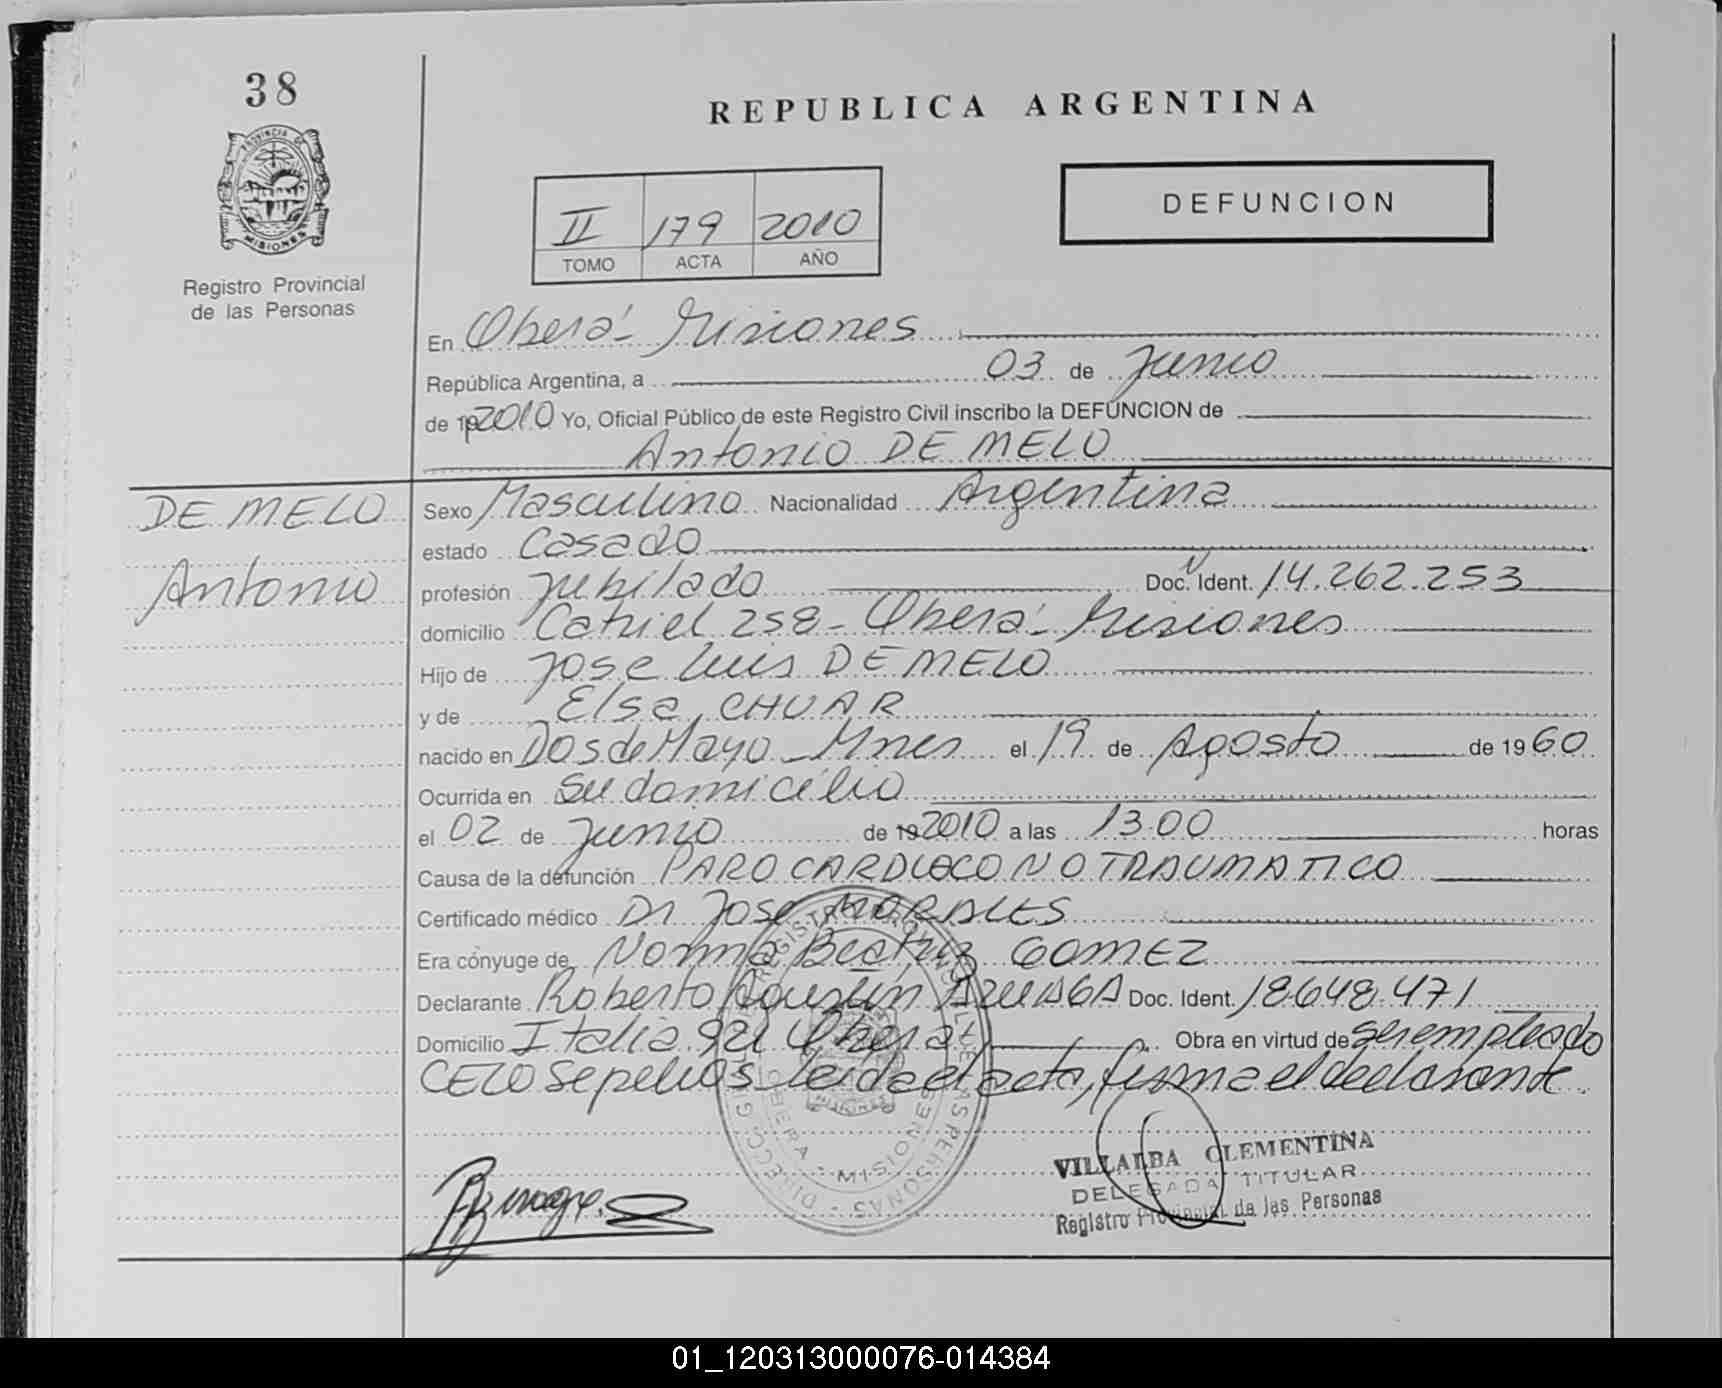 38
PROVINCIA DE
MISIONES
Registro Provincial
de las Personas
REPUBLICA ARGENTINA
II 179 2010
TOMO ACTA AÑO
DEFUNCION
En Oberá - Misiones
República Argentina, a 03 de Junio
de 19 2010 Yo, Oficial Público de este Registro Civil inscribo la DEFUNCION de
Antonio DE MELO
DE MELO
Antonio
Sexo Masculino Nacionalidad Argentina
estado Casado
profesión Jubilado Doc. Ident. 14.262.253
domicilio Catriel 258 - Oberá - Misiones
Hijo de Jose Luis DE MELO
y de Elsa CHUAR
nacido en Dos de Mayo - Mnes el 19 de Agosto de 1960
Ocurrida en su domicilio
el 02 de Junio de 19 2010 a las 13 00 horas
Causa de la defunción PARO CARDIACO NO TRAUMATICO
Certificado médico Dr Jose MORALES
Era cónyuge de Norma Beatriz GOMEZ
Declarante Roberto Agustín AZUAGA Doc. Ident. 18.648.471
Domicilio Italia 921 Oberá Obra en virtud de ser empleado
CELO Sepelios Leida el acta, firma el declarante
MISIONES
OBERA - MISIONES
VILLALBA CLEMENTINA
DELEGADA TITULAR
Registro Provincial de las Personas
01_120313000076-014384